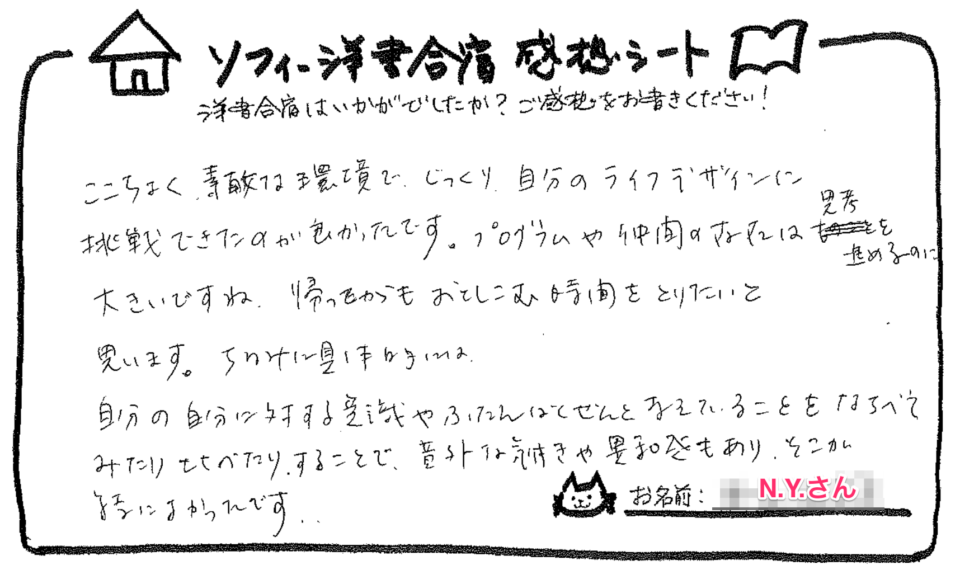 ソフィー洋書合宿 感想シート
洋書合宿はいかがでしたか？ご感想をお書きください！
ここちよく、素敵な環境で、じっくり、自分のライフデザインに
挑戦できたのが良かったです。プログラムや仲間の存在は思考を進めるのに
大きいですね。帰ってからもおとしこむ時間をとりたいと
思います。ちなみに具体的には、
自分の自分に対する意識やふだんばくぜんと考えていることをならべて
みたり、もちべたり、することで、意外な気付きや異和感もあり、そこが
特によかったです...
お名前： N.Y.さん